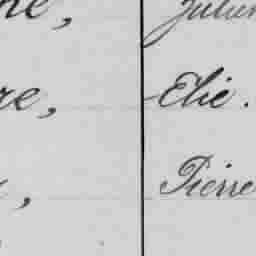 ne, Julien
re, Elie.
, Pierre